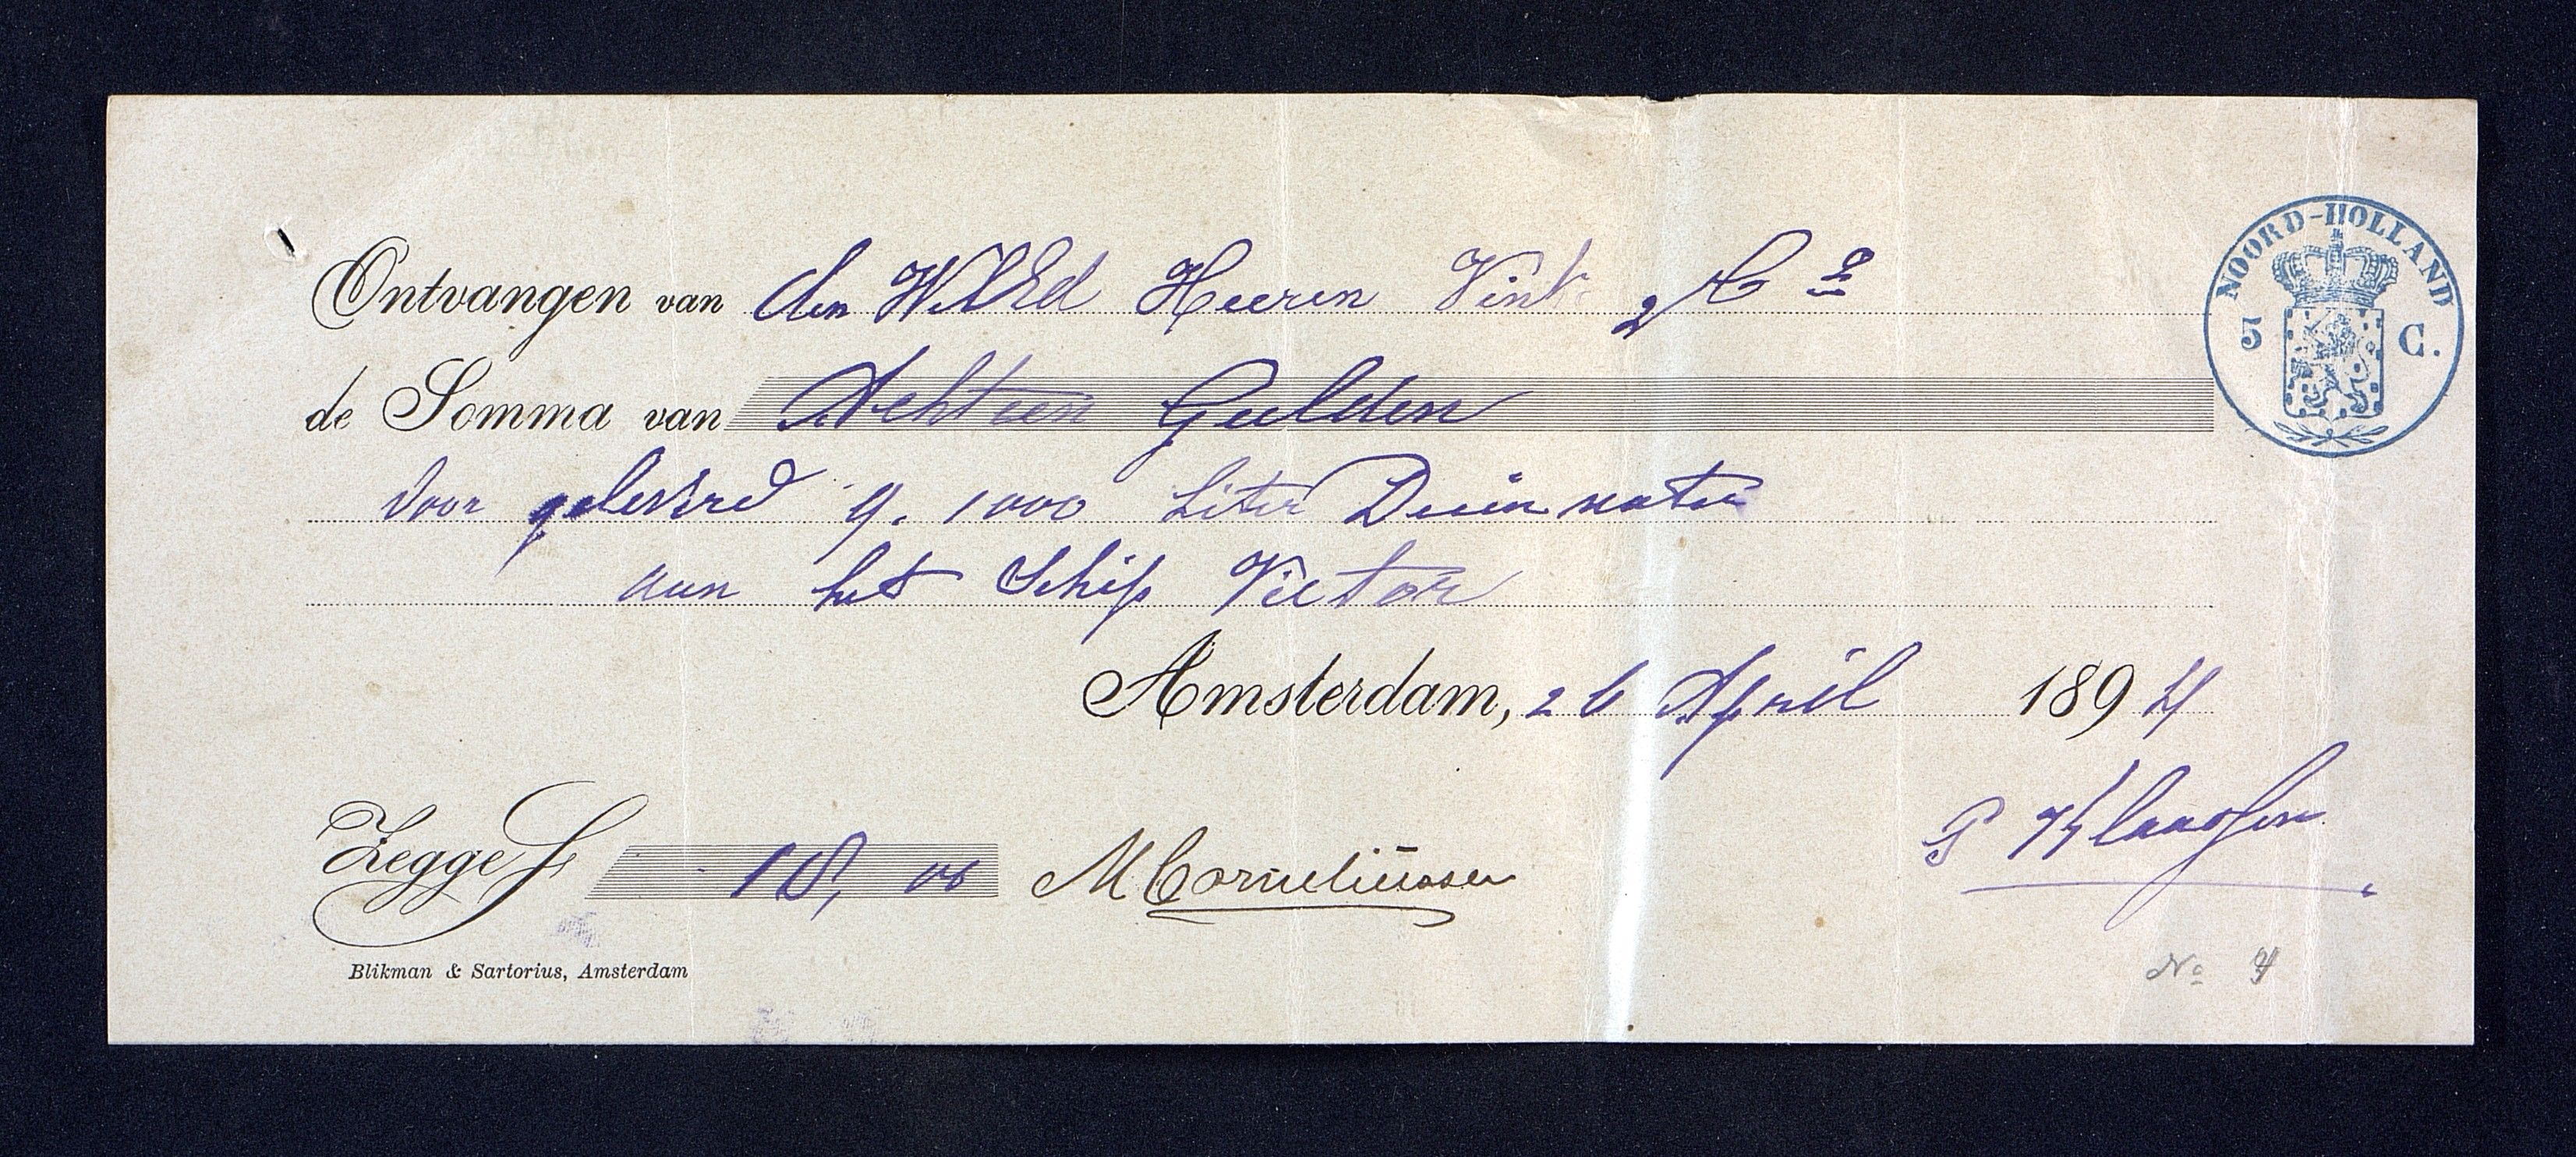 NOORD-HOLLAND
5 C.
Ontvangen van den WelEd Heeren Vink & Co
de Somma van Achteen Gulden
voor geleverd 9. 1000 Liter Duinwater
aan het Schip Victor
Amsterdam, 26 April 1894
P Klaassen
Zegge f 18, 00 M Corneliussen
Blikman & Sartorius, Amsterdam
No 4